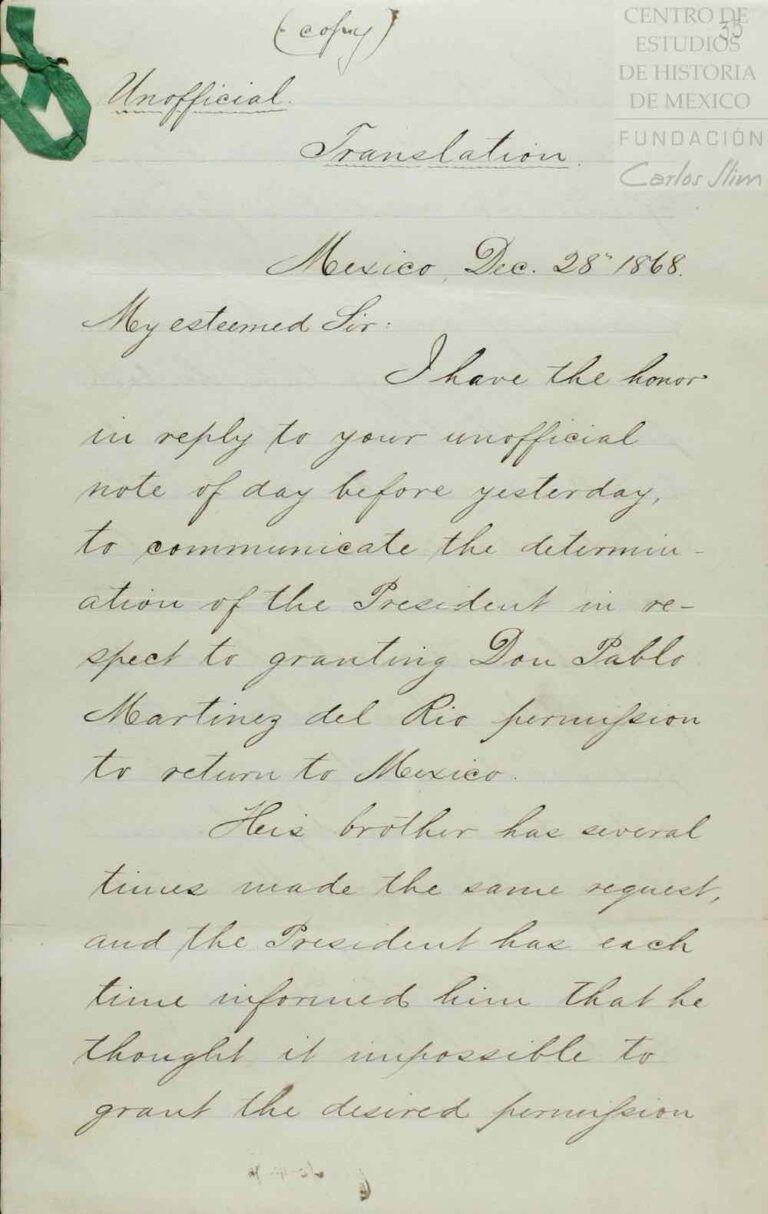 (copy)
35
CENTRO DE
ESTUDIOS
DE HISTORIA
DE MEXICO
FUNDACIÓN
Carlos Slim
Unofficial.
Translation.
Mexico, Dec. 28" 1868.
My esteemed Sir:
I have the honor
in reply to your unofficial
note of day before yesterday,
to communicate the determin-
ation of the President in re-
spect to granting Don Pablo
Martinez del Rio permission
to return to Mexico.
His brother has several
times made the same request,
and the President has each
time informed him that he
thought it impossible to
grant the desired permission